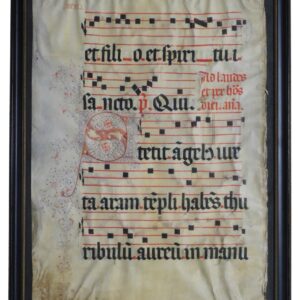 et fili o et spiri tu i
sa ncto. p. Qui.
Ad laudes
et per hōs
diei. añа.
Stetit āgels iux
ta aram tēpli habēs thu
ribulū aureū in manu